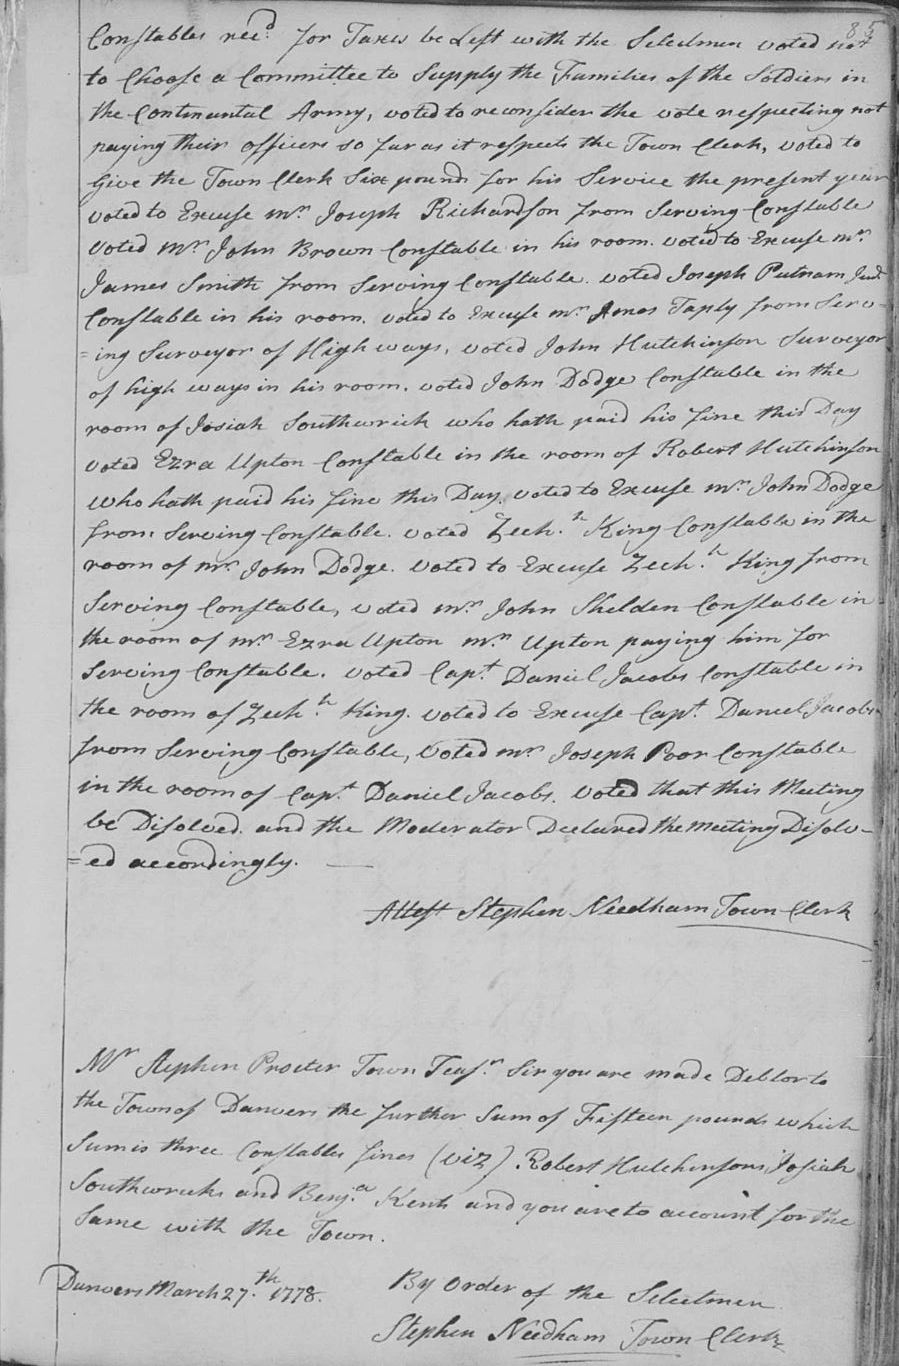 85
Constables rec.d for Taxes be Left with the Selectmen voted not
to Choose a Committee to Supply the Families of the Soldiers in
the Continantal Army, voted to reconsider the vote respecting not
paying their officers so far as it respects the Town Clerk, voted to
Give the Town Clerk Six pounds for his Service the present year
voted to Excuse mr. Joseph Richardson from Serving Constable
Voted Mr. John Brown Constable in his room. voted to Excuse mr.
James Smith from Serving Constable. voted Joseph Putnam Jun.r
Constable in his room. voted to Excuse mr. Amos Taply from Serv-
=ing Surveyor of High ways, voted John Hutchinson Surveyor
of high ways in his room. voted John Dodge Constable in the
room of Josiah Southwrick who hath paid his fine this Day
voted Ezra Upton Constable in the room of Robert Hutchinson
who hath paid his fine this Day. voted to Excuse mr. John Dodge
from Serving Constable. voted Zech.h King Constable in the
room of mr. John Dodge. voted to Excuse Zech.h King from
Serving Constable, voted mr. John Shelden Constable in
the room of mr. Ezra Upton mr. Upton paying him for
Serving Constable. voted Cap.t Daniel Jacobs Constable in
the room of Zech.h King. voted to Excuse Cap.t Daniel Jacobs
from Serving Constable, Voted mr. Joseph Poor Constable
in the room of Cap.t Daniel Jacobs. voted that this Meeting
be Disolved. and the Moderator Declared the meeting Disolv-
=ed accordingly. —
Attest Stephen Needham Town Clerk
Mr Stephen Procter Town Teas.r Sir you are made Debtor to
the Town of Danvers the further Sum of Fifteen pounds which
Sum is three Constables fines (viz). Robert Hutchinsons, Josiah
Southwricks and Benj.a Kent and you are to account for the
Same with the Town.
Danvers March 27.th 1778.
By Order of the Selectmen
Stephen Needham Town Clerk